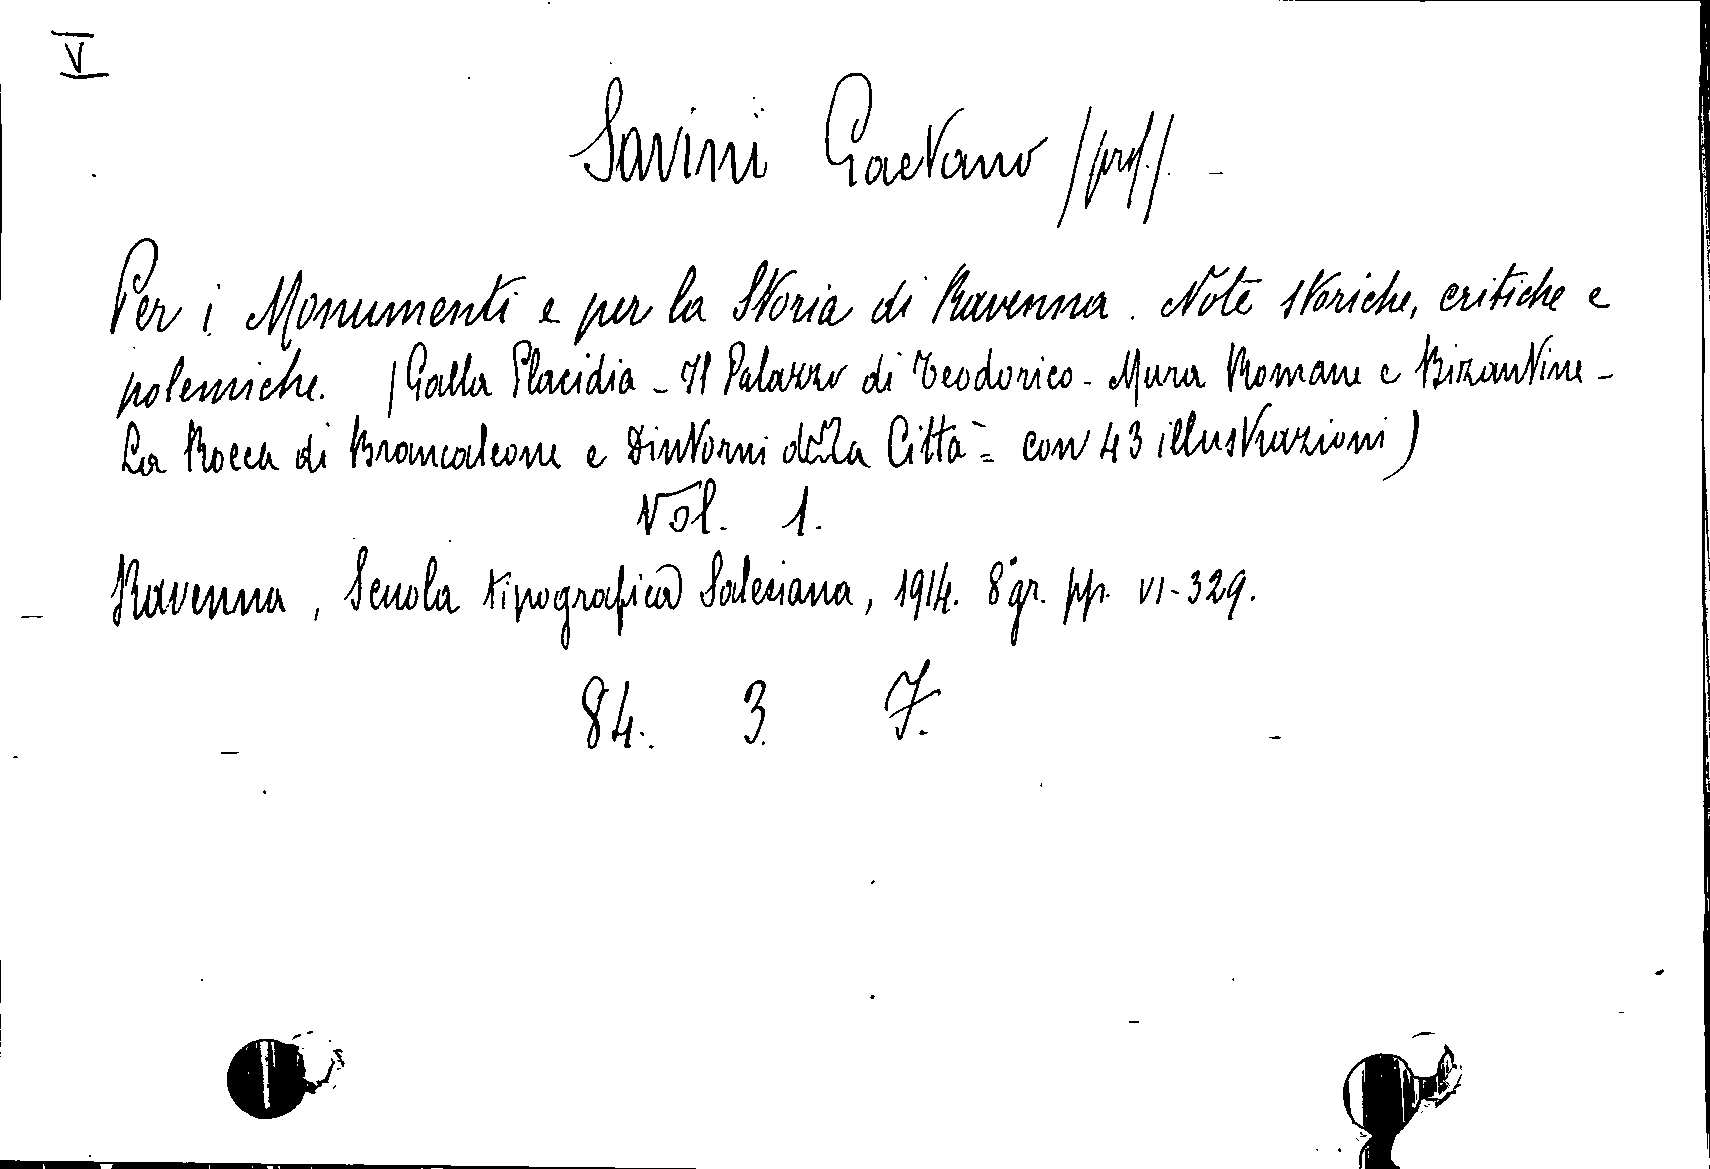 V
Savini Gaetano /prof./. -
Per i Monumenti e per la Storia di Ravenna. Note storiche, critiche e
polemiche. (Galla Placidia - Il Palazzo di Teodorico - Mura Romane e Bizantine -
La Rocca di Brancaleone e Dintorni della Città = con 43 illustrazioni)
Vol. 1.
Ravenna, Scuola tipografica Salesiana, 1914. 8° gr. pp. VI-329.
84. 3. 7.